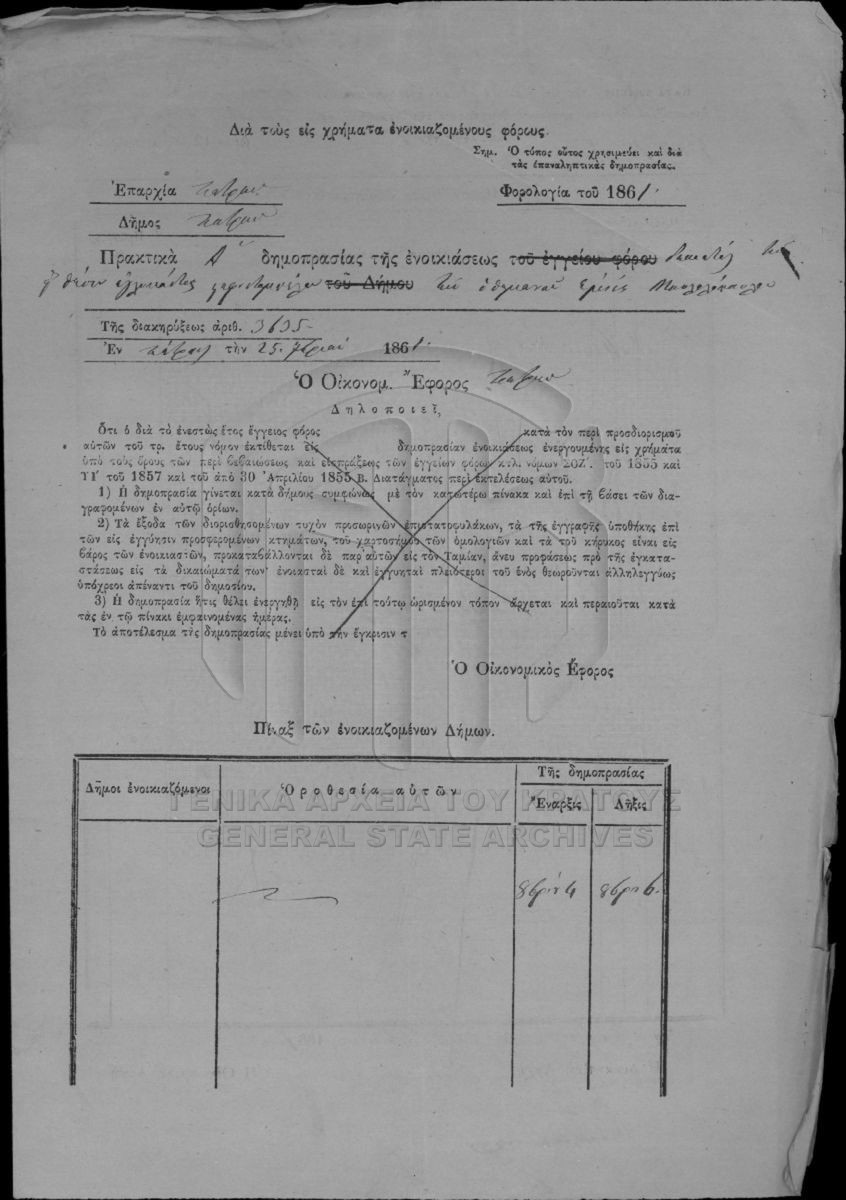 Διὰ τοὺς εἰς χρήματα ἐνοικιαζομένους φόρους.
Σημ. Ὁ τύπος οὗτος χρησιμεύει καὶ διὰ
τὰς ἐπαναληπτικὰς δημοπρασίας.
Ἐπαρχία Πατρῶν
Φορολογία τοῦ 1861
Δῆμος Πατρῶν
Πρακτικὰ Α δημοπρασίας τῆς ἐνοικιάσεως τοῦ ἐγγείου φόρου
τοῦ Δήμου
Τῆς διακηρύξεως ἀριθ. 3635
Ἐν Πάτραις τὴν 25 7βρίου 1861
Ὁ Οἰκονομ. Ἔφορος Πατρῶν
Δηλοποιεῖ,
Ὅτι ὁ διὰ τὸ ἐνεστὼς ἔτος ἔγγειος φόρος κατὰ τὸν περὶ προσδιορισμοῦ
αὐτῶν τοῦ τρ. ἔτους νόμον ἐκτίθεται εἰς δημοπρασίαν ἐνοικιάσεως ἐνεργουμένης εἰς χρήματα
ὑπὸ τοὺς ὅρους τῶν περὶ βεβαιώσεως καὶ εἰσπράξεως τῶν ἐγγείων φόρων κτλ. νόμων ΣΟΖ΄. τοῦ 1855 καὶ
ΥΓ΄ τοῦ 1857 καὶ τοῦ ἀπὸ 30 Ἀπριλίου 1855 Β. Διατάγματος περὶ ἐκτελέσεως αὐτοῦ.
1) Ἡ δημοπρασία γίνεται κατὰ δήμους συμφώνως μὲ τὸν κατωτέρω πίνακα καὶ ἐπὶ τῇ βάσει τῶν δια-
γραφομένων ἐν αὐτῷ ὁρίων.
2) Τὰ ἔξοδα τῶν διορισθησομένων τυχὸν προσωρινῶν ἐπιστατοφυλάκων, τὰ τῆς ἐγγραφῆς ὑποθήκης ἐπὶ
τῶν εἰς ἐγγύησιν προσφερομένων κτημάτων, τοῦ χαρτοσήμου τῶν ὁμολογιῶν καὶ τὰ τοῦ κήρυκος εἶναι εἰς
βάρος τῶν ἐνοικιαστῶν, προκαταβάλλονται δὲ παρ' αὐτῶν εἰς τὸν Ταμίαν, ἄνευ προφάσεως πρὸ τῆς ἐγκατα-
στάσεως εἰς τὰ δικαιώματά των· ἐνοικιασταὶ δὲ καὶ ἐγγυηταὶ πλειότεροι τοῦ ἑνὸς θεωροῦνται ἀλληλεγγύως
ὑπόχρεοι ἀπέναντι τοῦ δημοσίου.
3) Ἡ δημοπρασία ἥτις θέλει ἐνεργηθῇ εἰς τὸν ἐπὶ τούτῳ ὡρισμένον τόπον ἄρχεται καὶ περαιοῦται κατὰ
τὰς ἐν τῷ πίνακι ἐμφαινομένας ἡμέρας.
Τὸ ἀποτέλεσμα τῆς δημοπρασίας μένει ὑπὸ τὴν ἔγκρισιν τ
Ὁ Οἰκονομικὸς Ἔφορος
Πίναξ τῶν ἐνοικιαζομένων Δήμων.
Δῆμοι ἐνοικιαζόμενοι
Ὁροθεσία αὐτῶν
Τῆς δημοπρασίας
Ἔναρξις
Λῆξις
ΓΕΝΙΚΑ ΑΡΧΕΙΑ ΤΟΥ ΚΡΑΤΟΥΣ
GENERAL STATE ARCHIVES